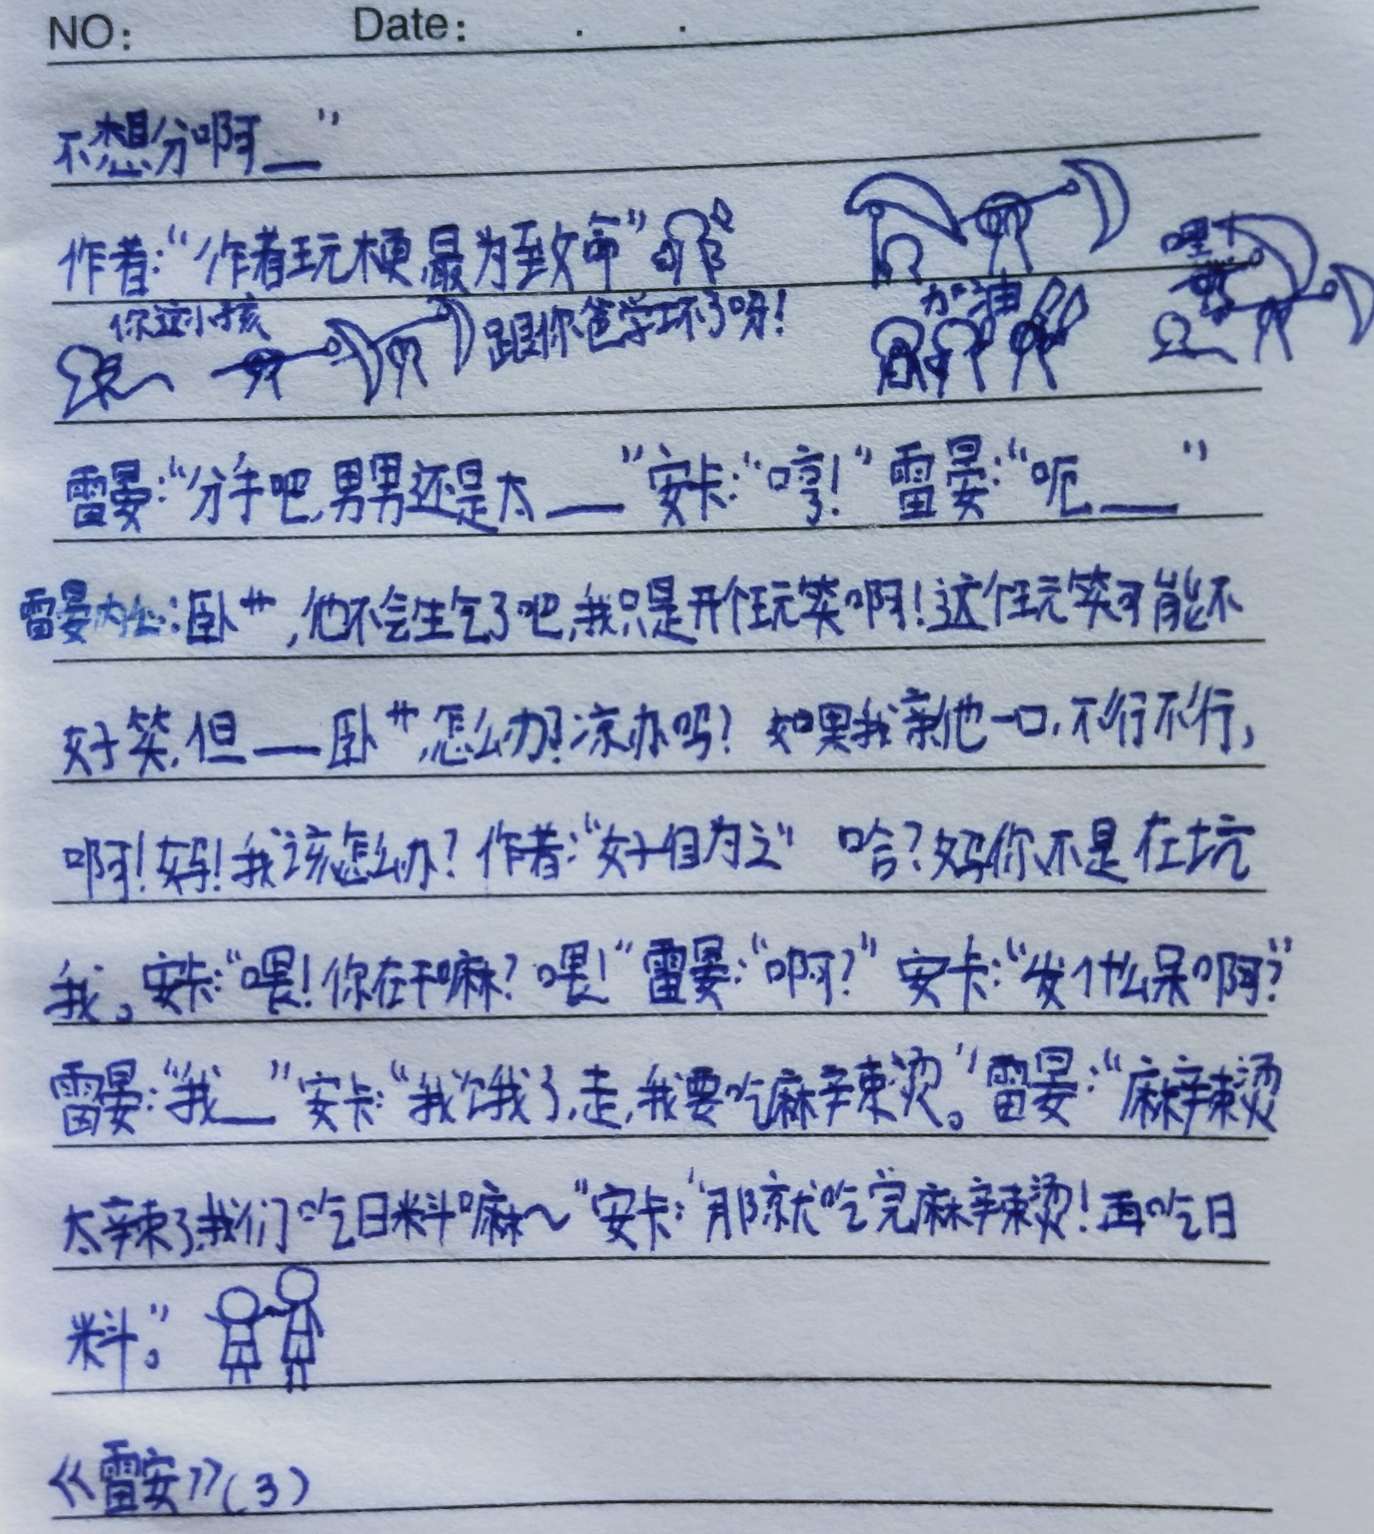 NO: Date: . .
不想分啊__”
作者:“作者玩梗,最为致命”
嘿!
你这小孩 跟你爸学坏了呀! 加油
雷晏:“分手吧,男男还是太__”安卡:“哼!”雷晏:“呃__”
雷晏内心:卧艹,他不会生气了吧,我只是开个玩笑啊!这个玩笑可能不
好笑,但__卧艹,怎么办?凉办吗?如果我亲他一口,不行不行,
啊!妈!我该怎么办?作者:“好自为之” 哈?妈你不是在坑
我。安卡:“喂!你在干嘛?喂!”雷晏:“啊?”安卡:“发什么呆啊?”
雷晏:“我__”安卡:“我饿了,走,我要吃麻辣烫。”雷晏:“麻辣烫
太辣了,我们吃日料嘛~”安卡:“那就吃完麻辣烫!再吃日
料。”
《雷安》(3)